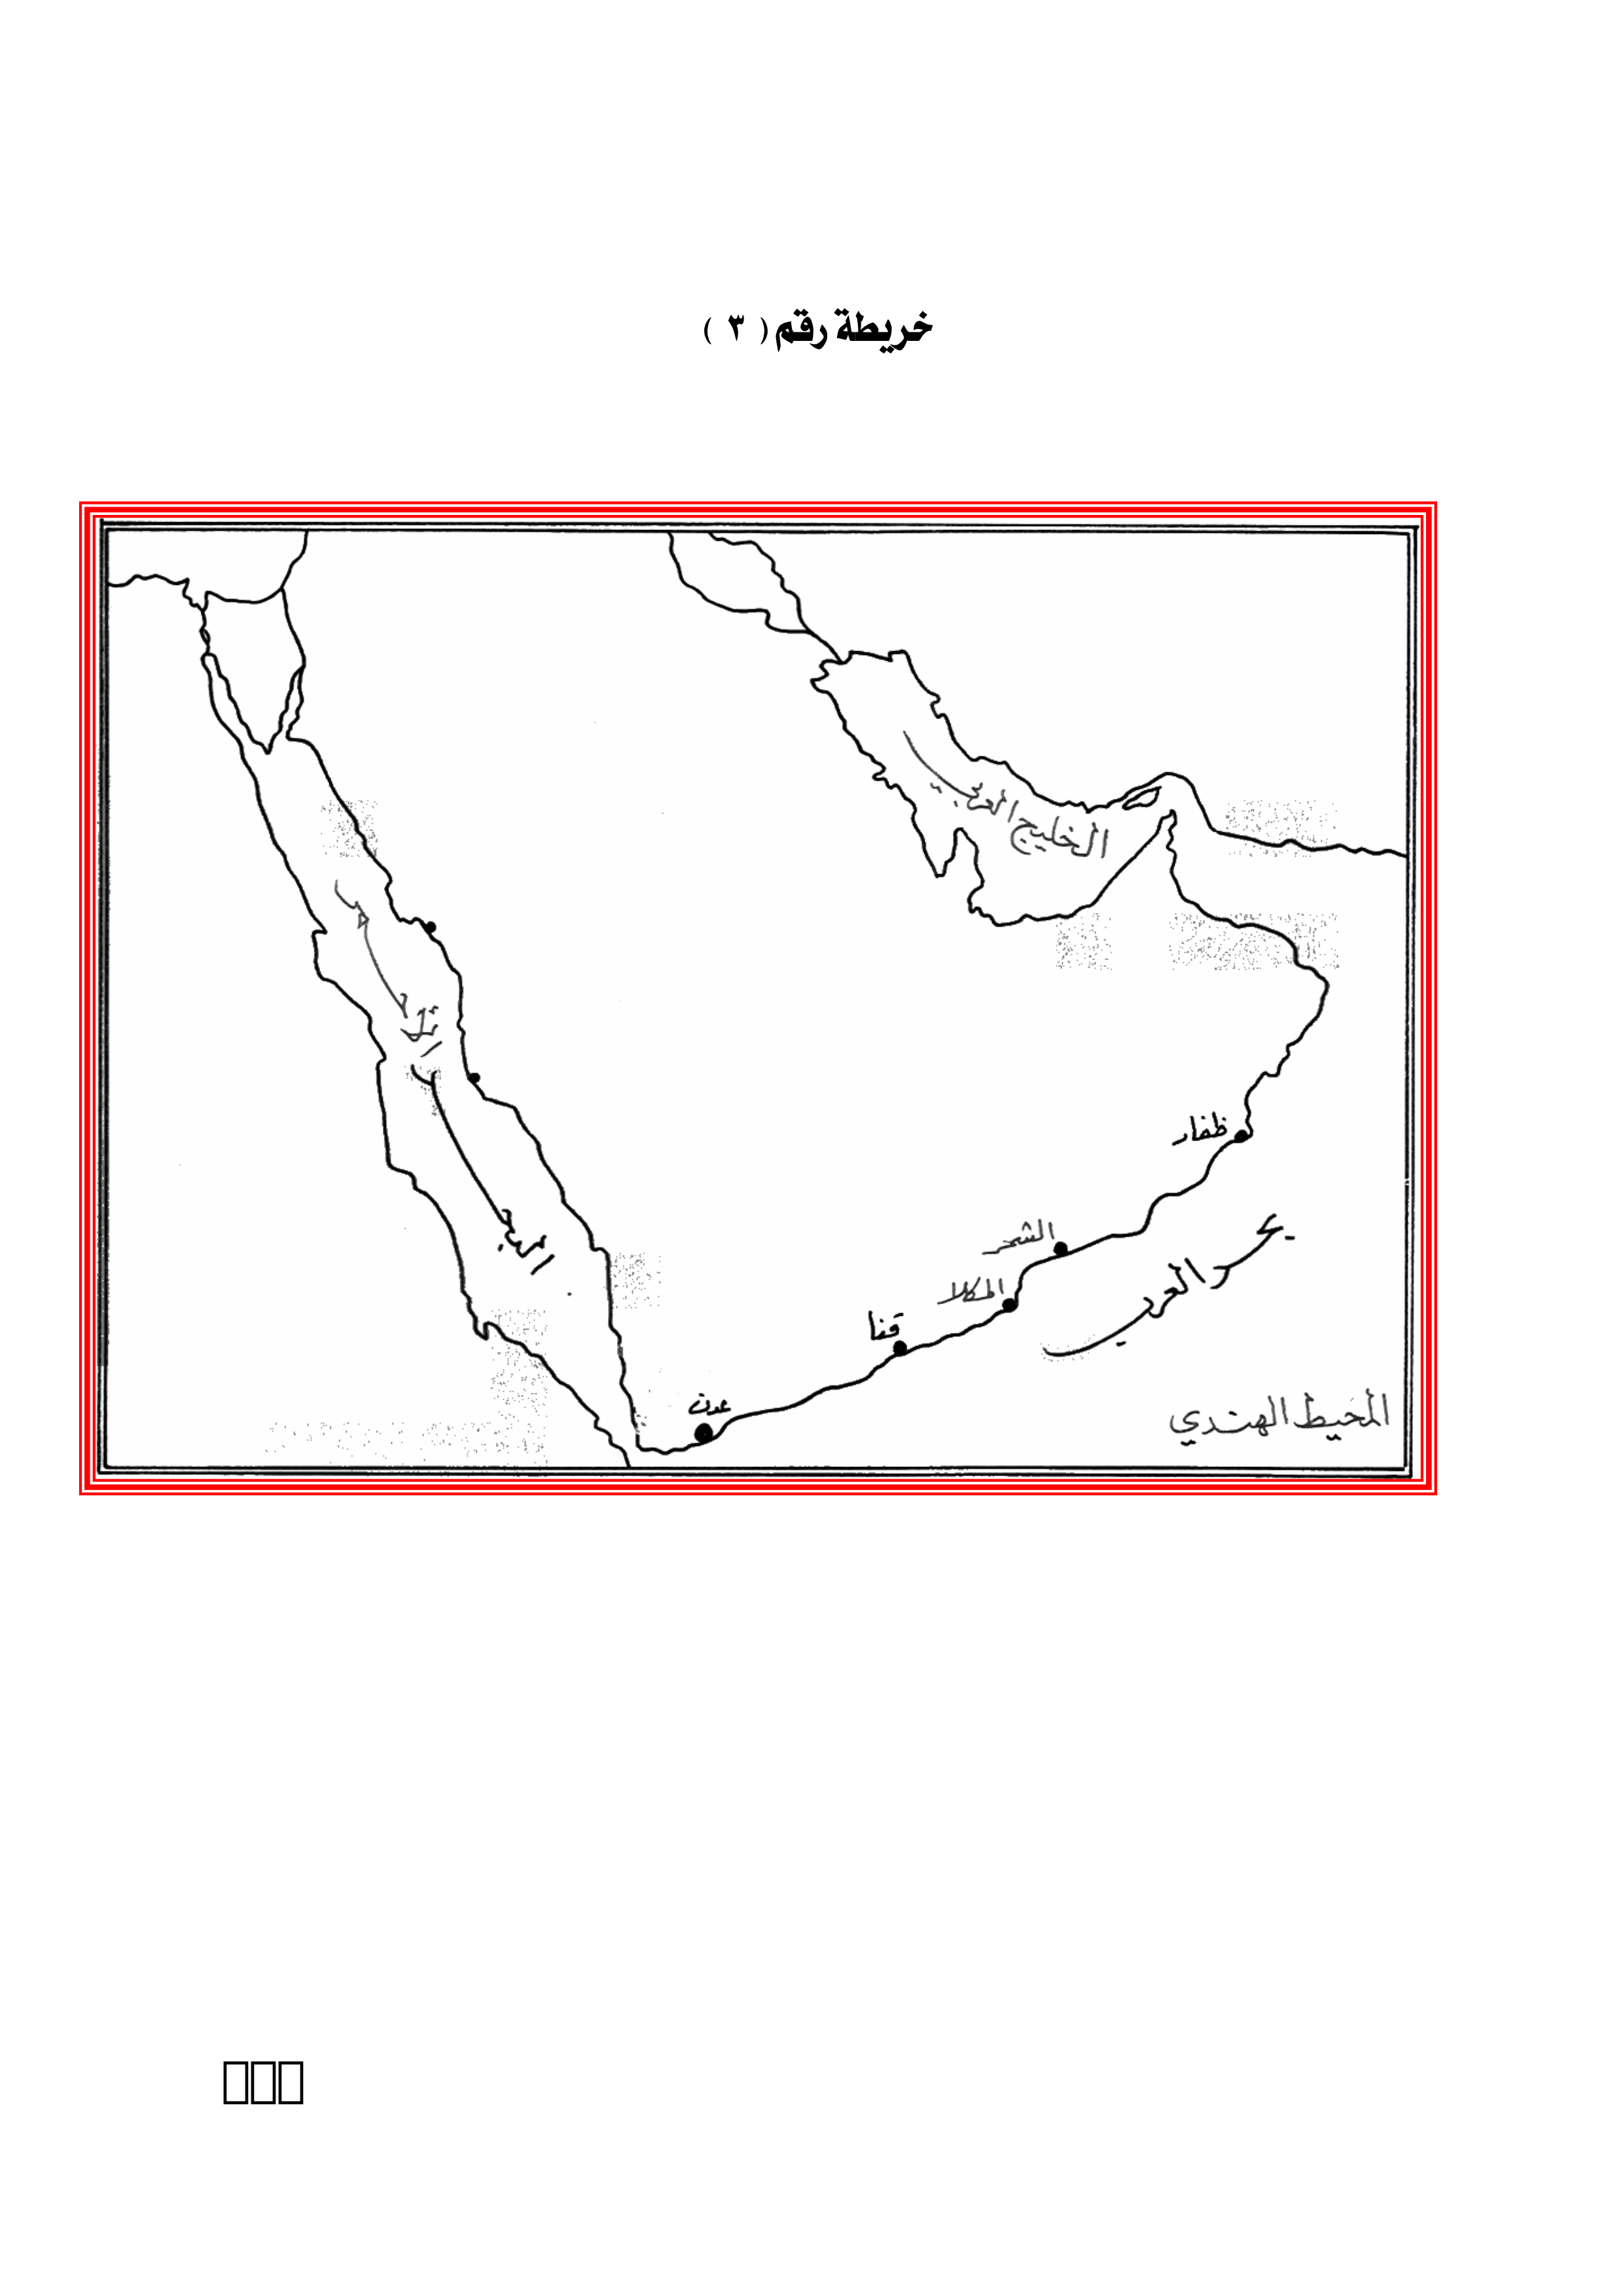 خريطة رقم ( ٣ )
الخليج العربي
البحر الأحمر
ظفار
الشحر
المكلا
قنا
عدن
بحر العرب
المحيط الهندي